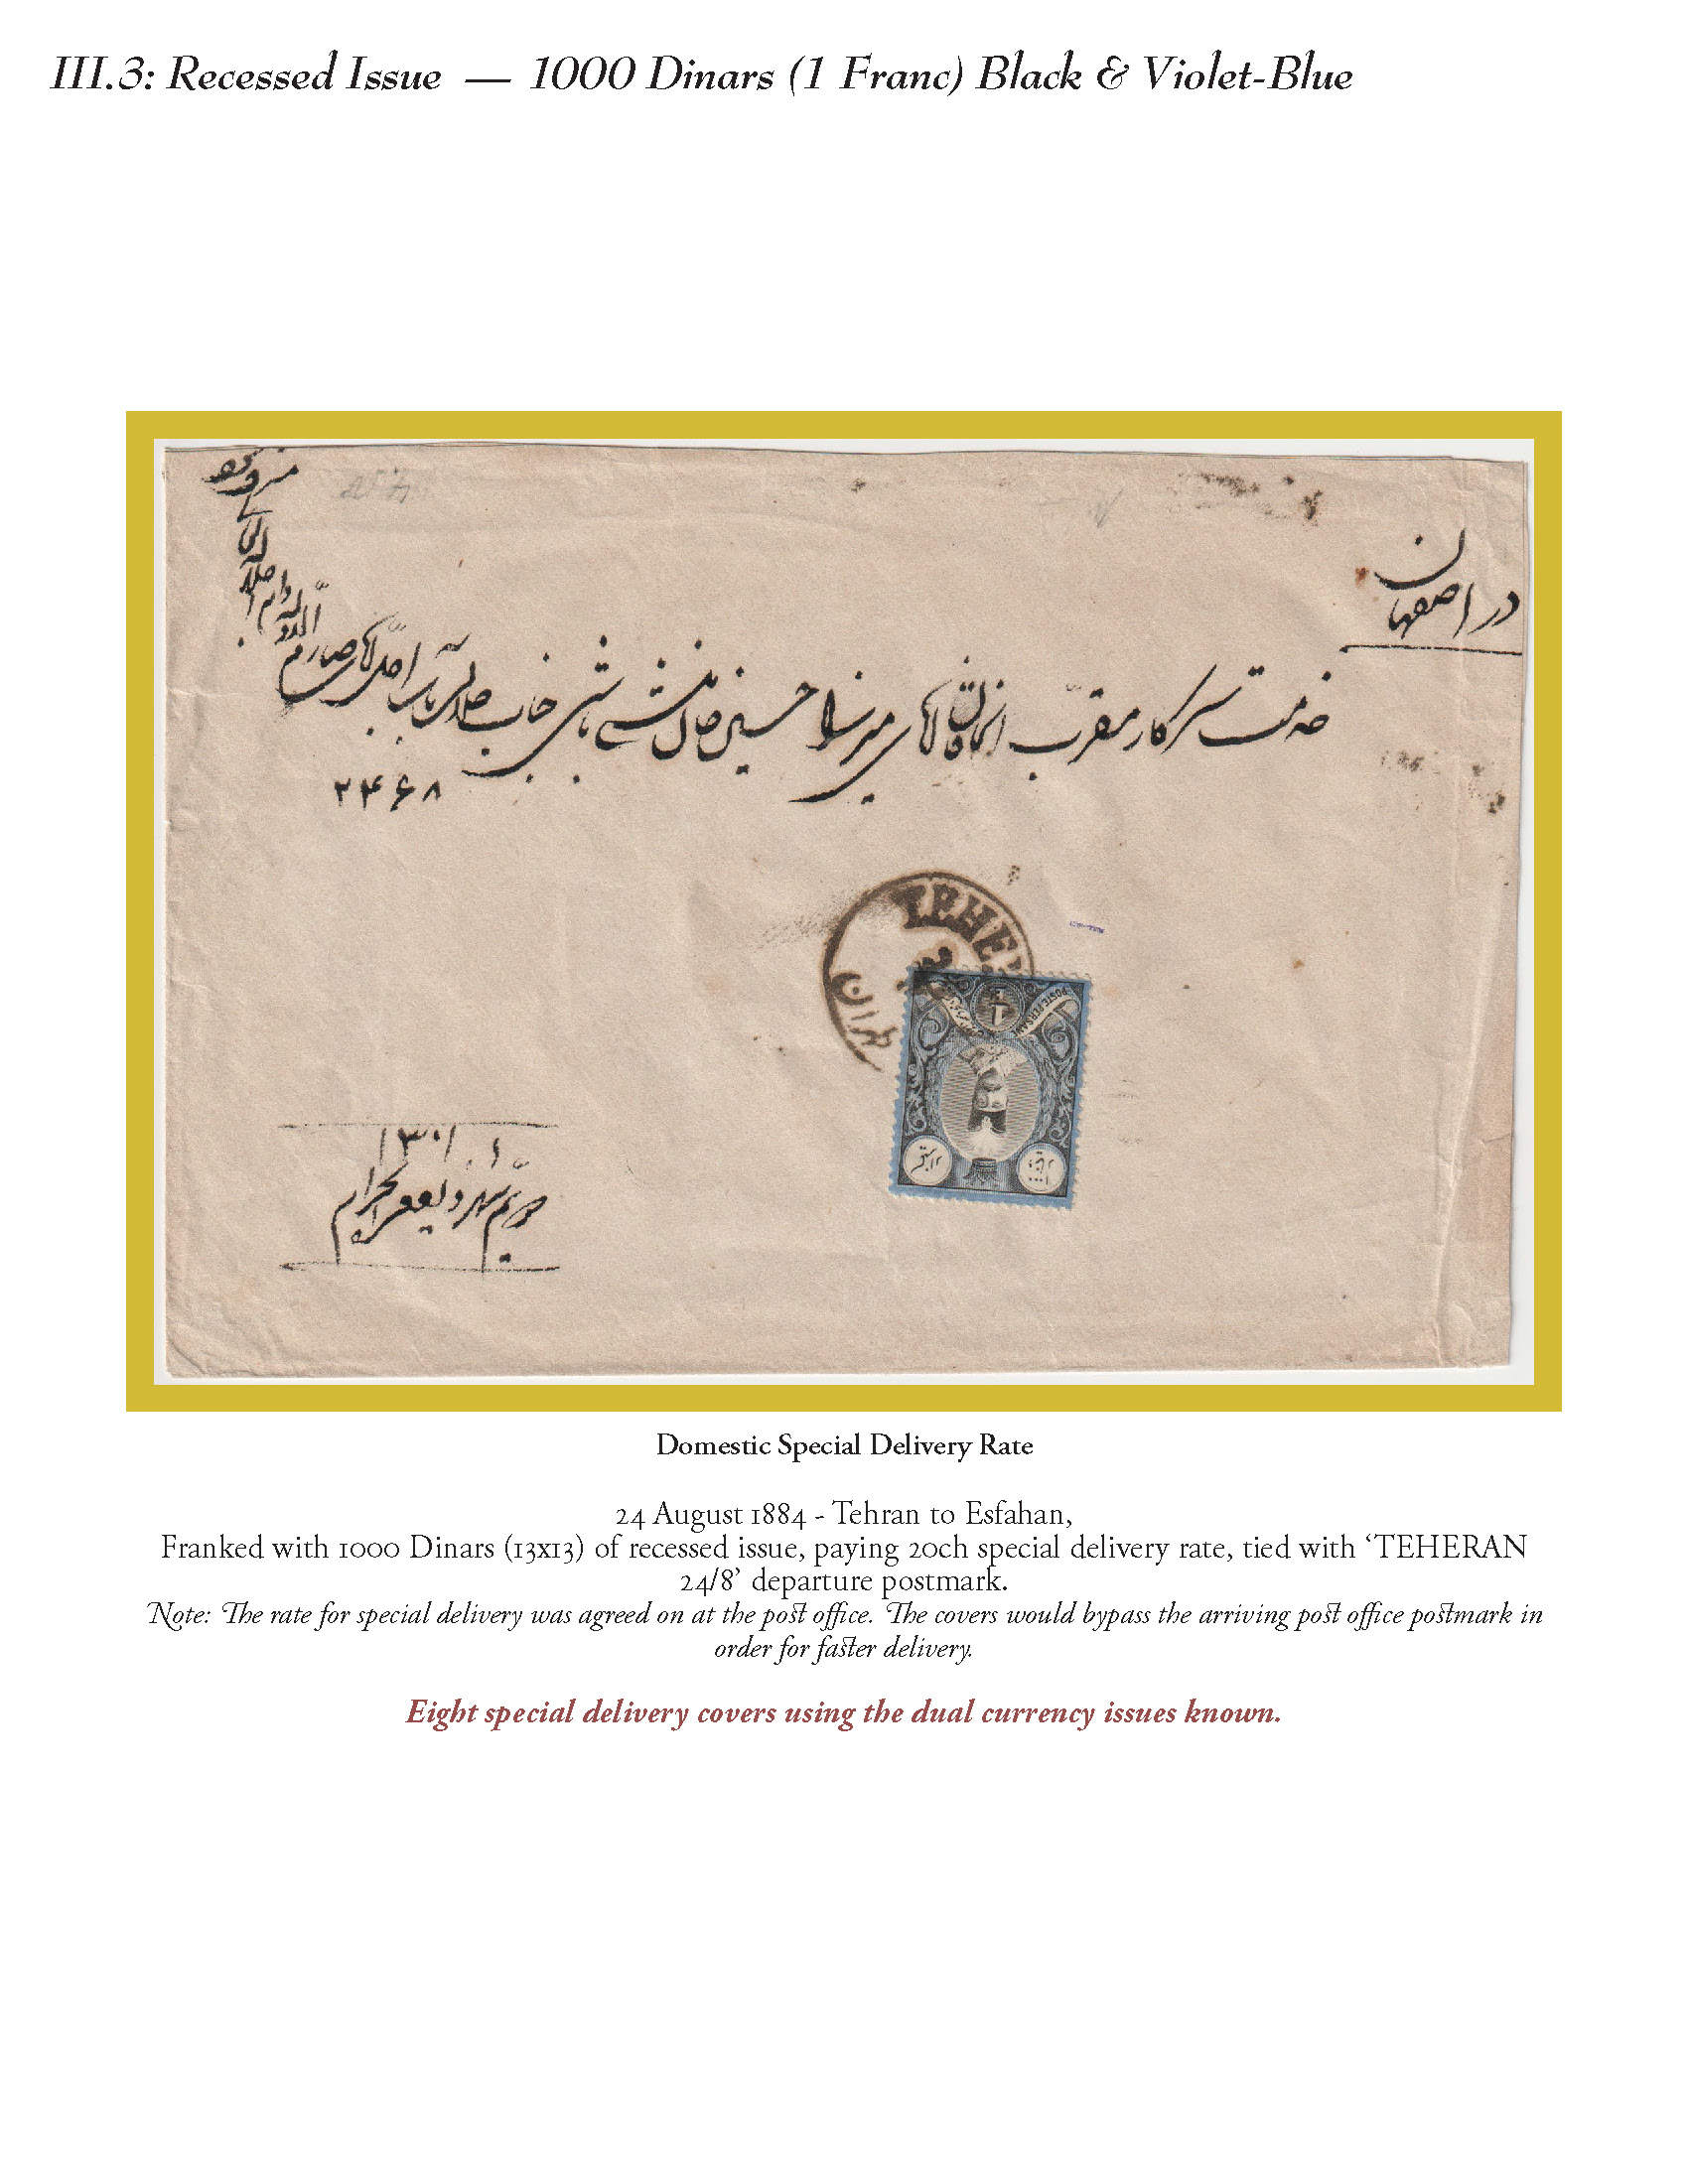 III.3: Recessed Issue — 1000 Dinars (1 Franc) Black & Violet-Blue
در اصفهان
خدمت سرکار مقرب الخاقان آقای میرزا حسین خان منشی باشی جناب صارم
الدوله
۲۴۶۸
TEHER
هران
POSTE PERSANE
1
۱۳۰۱
Domestic Special Delivery Rate
24 August 1884 - Tehran to Esfahan,
Franked with 1000 Dinars (13x13) of recessed issue, paying 20ch special delivery rate, tied with ‘TEHERAN
24/8’ departure postmark.
Note: The rate for special delivery was agreed on at the post office. The covers would bypass the arriving post office postmark in
order for faster delivery.
Eight special delivery covers using the dual currency issues known.